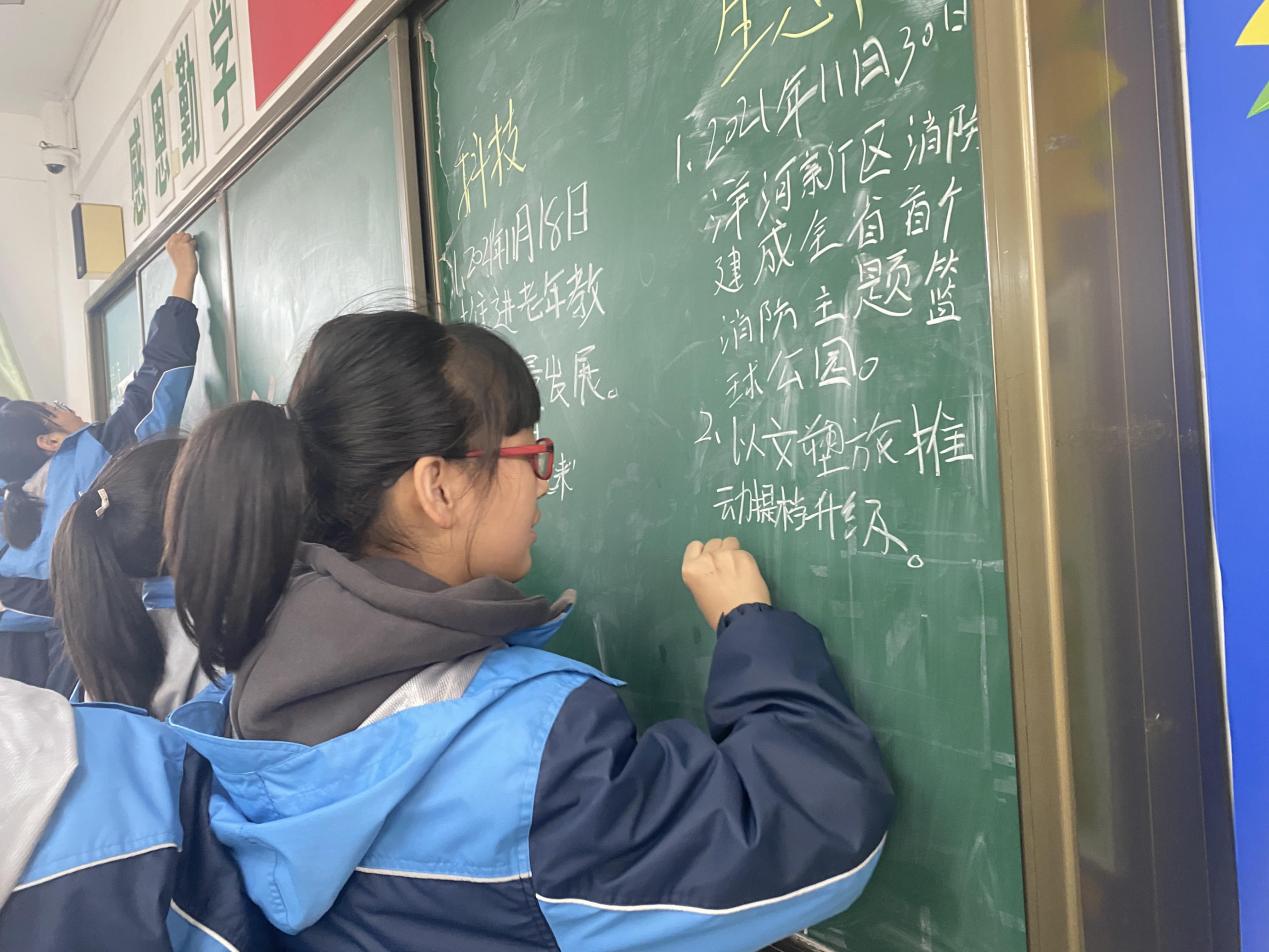 感恩勤学
科技
1.2021年11月18日
推进老年教
发展。
来
1.2021年11月30日
洋河新区消防
建成全省首个
消防主题篮
球公园。
2、以文塑旅推
动提档升级。